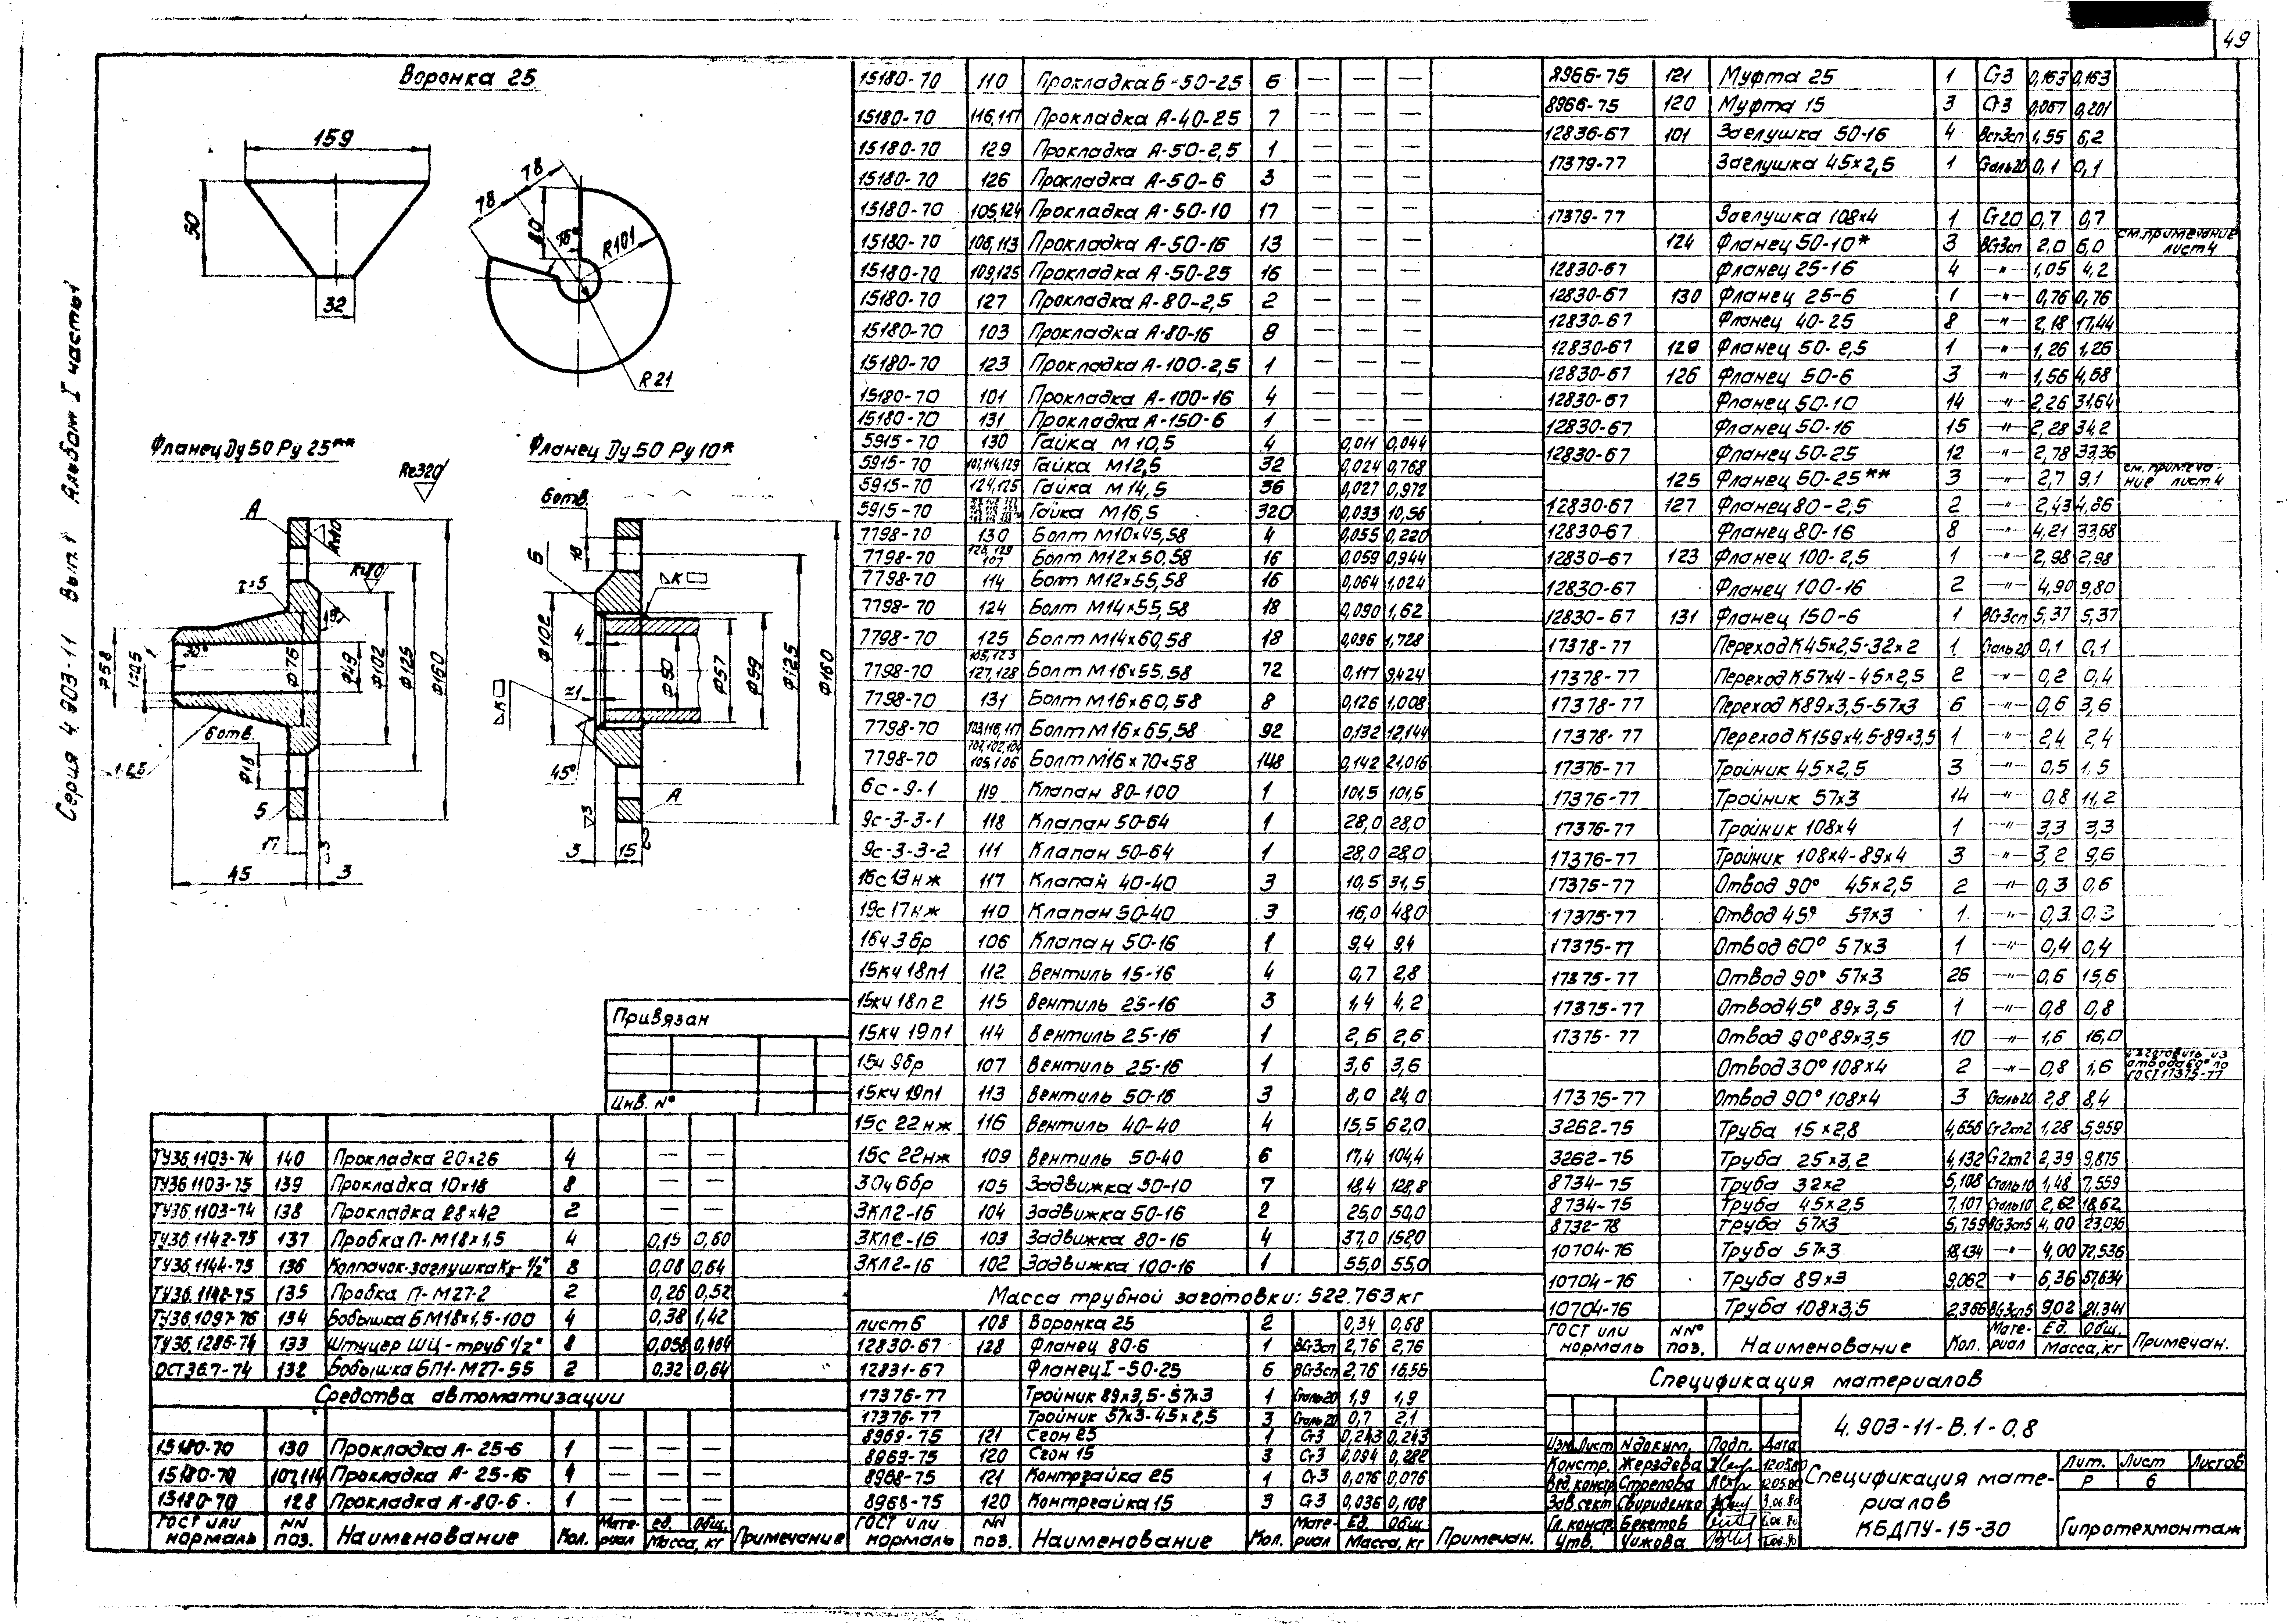 49
Серия 4.903-11 Вып.1 Альбом I часть 1
Воронка 25
159
50
32
78
78
80
75°
R101
R21
Фланец Ду 50 Ру 25**
Rz320
А
Rz40
Rz80
r=5
15°
Ф58
Ф76
Ф49
Ф102
Ф125
Ф160
6 отв.
Ф18
Б
17
45
3
Фланец Ду 50 Ру 10*
6 отв.
18
Б
К
4
≈1
К
45°
Ф102
Ф50
Ф57
Ф59
Ф125
Ф160
А
3
15
Привязан
Инв. №
ТУ36.1103-74 140 Прокладка 20×26 4 — —
ТУ36.1103-75 139 Прокладка 10×18 8 — —
ТУ36.1103-74 138 Прокладка 28×42 2 — —
ТУ36.1142-75 137 Пробка П-М18×1,5 4 0,15 0,60
ТУ36.1144-75 136 Колпачок-заглушка К3-1/2" 8 0,08 0,64
ТУ36.1142-75 135 Пробка П-М27-2 2 0,26 0,52
ТУ36.1097-76 134 Бобышка БМ18×1,5-100 4 0,38 1,42
ТУ36.1286-74 133 Штуцер ШЦ-труб 1/2" 8 0,058 0,464
ОСТ36.7-74 132 Бобышка БП1-М27-55 2 0,32 0,64
Средства автоматизации
15180-70 130 Прокладка А-25-6 1 — — —
15180-70 107,114 Прокладка А-25-16 4 — — —
15180-70 128 Прокладка А-80-6 1 — — —
ГОСТ или нормаль NN поз. Наименование Кол. Материал ед. общ. Масса, кг Примечание
15180-70 110 Прокладка Б-50-25 6 — — —
15180-70 116,117 Прокладка А-40-25 7 — — —
15180-70 129 Прокладка А-50-2,5 1 — — —
15180-70 126 Прокладка А-50-6 3 — — —
15180-70 105,124 Прокладка А-50-10 17 — — —
15180-70 106,113 Прокладка А-50-16 13 — — —
15180-70 109,125 Прокладка А-50-25 16 — — —
15180-70 127 Прокладка А-80-2,5 2 — — —
15180-70 103 Прокладка А-80-16 8 — — —
15180-70 123 Прокладка А-100-2,5 1 — — —
15180-70 101 Прокладка А-100-16 4 — — —
15180-70 131 Прокладка А-150-6 1 — — —
5915-70 130 Гайка М10,5 4 0,011 0,044
5915-70 107,114,129 Гайка М12,5 32 0,024 0,768
5915-70 124,125 Гайка М14,5 36 0,027 0,972
5915-70 Гайка М16,5 320 0,033 10,56
7798-70 130 Болт М10×45,58 4 0,055 0,220
7798-70 126,129 107 Болт М12×50,58 16 0,059 0,944
7798-70 114 Болт М12×55,58 16 0,064 1,024
7798-70 124 Болт М14×55,58 18 0,090 1,62
7798-70 125 Болт М14×60,58 18 0,096 1,728
7798-70 105,123 127,128 Болт М16×55,58 72 0,117 8,424
7798-70 131 Болт М16×60,58 8 0,126 1,008
7798-70 103,116,117 Болт М16×65,58 92 0,132 12,144
7798-70 101,102,104 105,106 Болт М16×70×58 148 0,142 21,016
6с-9-1 119 Клапан 80-100 1 101,5 101,5
9с-3-3-1 118 Клапан 50-64 1 28,0 28,0
9с-3-3-2 111 Клапан 50-64 1 28,0 28,0
16с13нж 117 Клапан 40-40 3 10,5 31,5
19с17нж 110 Клапан 50-40 3 16,0 48,0
16ч3бр 106 Клапан 50-16 1 9,4 9,4
15кч18п1 112 Вентиль 15-16 4 0,7 2,8
15кч18п2 115 Вентиль 25-16 3 1,4 4,2
15кч19п1 114 Вентиль 25-16 1 2,6 2,6
15ч9бр 107 Вентиль 25-16 1 3,6 3,6
15кч19п1 113 Вентиль 50-16 3 8,0 24,0
15с22нж 116 Вентиль 40-40 4 15,5 62,0
15с22нж 109 Вентиль 50-40 6 17,4 104,4
30ч6бр 105 Задвижка 50-10 7 18,4 128,8
ЗКЛ2-16 104 Задвижка 50-16 2 25,0 50,0
ЗКЛ2-16 103 Задвижка 80-16 4 37,0 152,0
ЗКЛ2-16 102 Задвижка 100-16 1 55,0 55,0
Масса трубной заготовки: 522.763 кг
лист 6 108 Воронка 25 2 0,34 0,68
12830-67 128 Фланец 80-6 1 ВСт3сп 2,76 2,76
12831-67 Фланец I-50-25 6 ВСт3сп 2,76 16,56
17376-77 Тройник 89×3,5-57×3 1 Сталь20 1,9 1,9
17376-77 Тройник 57×3-45×2,5 3 Сталь20 0,7 2,1
8969-75 121 Сгон 25 1 Ст3 0,243 0,243
8969-75 120 Сгон 15 3 Ст3 0,094 0,282
8968-75 121 Контргайка 25 1 Ст3 0,076 0,076
8968-75 120 Контргайка 15 3 Ст3 0,036 0,108
ГОСТ или нормаль NN поз. Наименование Кол. Материал Ед. Общ Масса, кг Примечан.
8966-75 121 Муфта 25 1 Ст3 0,163 0,163
8966-75 120 Муфта 15 3 Ст3 0,067 0,201
12836-67 101 Заглушка 50-16 4 ВСт3сп 1,55 6,2
17379-77 Заглушка 45×2,5 1 Сталь20 0,1 0,1
17379-77 Заглушка 108×4 1 Ст20 0,7 0,7
124 Фланец 50-10* 3 ВСт3сп 2,0 6,0 см.примечание лист 4
12830-67 Фланец 25-16 4 —"— 1,05 4,2
12830-67 130 Фланец 25-6 1 —"— 0,76 0,76
12830-67 Фланец 40-25 8 —"— 2,18 17,44
12830-67 129 Фланец 50-2,5 1 —"— 1,26 1,26
12830-67 126 Фланец 50-6 3 —"— 1,56 4,68
12830-67 Фланец 50-10 14 —"— 2,26 31,64
12830-67 Фланец 50-16 15 —"— 2,28 34,2
12830-67 Фланец 50-25 12 —"— 2,78 33,36
125 Фланец 50-25** 3 —"— 2,7 9,1 см. примечание лист 4
12830-67 127 Фланец 80-2,5 2 —"— 2,43 4,86
12830-67 Фланец 80-16 8 —"— 4,21 33,68
12830-67 123 Фланец 100-2,5 1 —"— 2,98 2,98
12830-67 Фланец 100-16 2 —"— 4,90 9,80
12830-67 131 Фланец 150-6 1 ВСт3сп 5,37 5,37
17378-77 Переход К45×2,5-32×2 1 Сталь20 0,1 0,1
17378-77 Переход К57×4-45×2,5 2 —"— 0,2 0,4
17378-77 Переход К89×3,5-57×3 6 —"— 0,6 3,6
17378-77 Переход К159×4,5-89×3,5 1 —"— 2,4 2,4
17376-77 Тройник 45×2,5 3 —"— 0,5 1,5
17376-77 Тройник 57×3 14 —"— 0,8 11,2
17376-77 Тройник 108×4 1 —"— 3,3 3,3
17376-77 Тройник 108×4-89×4 3 —"— 3,2 9,6
17375-77 Отвод 90° 45×2,5 2 —"— 0,3 0,6
17375-77 Отвод 45° 57×3 1 —"— 0,3 0,3
17375-77 Отвод 60° 57×3 1 —"— 0,4 0,4
17375-77 Отвод 90° 57×3 26 —"— 0,6 15,6
17375-77 Отвод 45° 89×3,5 1 —"— 0,8 0,8
17375-77 Отвод 90° 89×3,5 10 —"— 1,6 16,0
Отвод 30° 108×4 2 —"— 0,8 1,6 изготовить из отвода 60° по ГОСТ 17375-77
17375-77 Отвод 90° 108×4 3 Сталь20 2,8 8,4
3262-75 Труба 15×2,8 4,656 Ст2кп2 1,28 5,959
3262-75 Труба 25×3,2 4,132 Ст2кп2 2,39 9,875
8734-75 Труба 32×2 5,108 Сталь10 1,48 7,559
8734-75 Труба 45×2,5 7,107 Сталь10 2,62 18,62
8732-78 Труба 57×3 5,759 ВСт3сп5 4,00 23,036
10704-76 Труба 57×3 18,134 —"— 4,00 72,536
10704-76 Труба 89×3 9,062 —"— 6,36 57,634
10704-76 Труба 108×3,5 2,366 ВСт3сп5 9,02 21,341
ГОСТ или нормаль NN° поз. Наименование Кол. Материал Ед. Общ. Масса, кг Примечан.
Спецификация материалов
4.903-11-В.1-0.8
Изм. Лист N докум. Подп. Дата
Констр. Жерздева 12.05.80
Вед.констр Стрелова 12.05.80
Зав.сект Свириденко 3.06.80
Гл.констр Бекетов .06.80
Утв. Чижова .06.80
Спецификация материалов
КБДПУ-15-30
Лит. Лист Листов
Р 6
Гипротехмонтаж